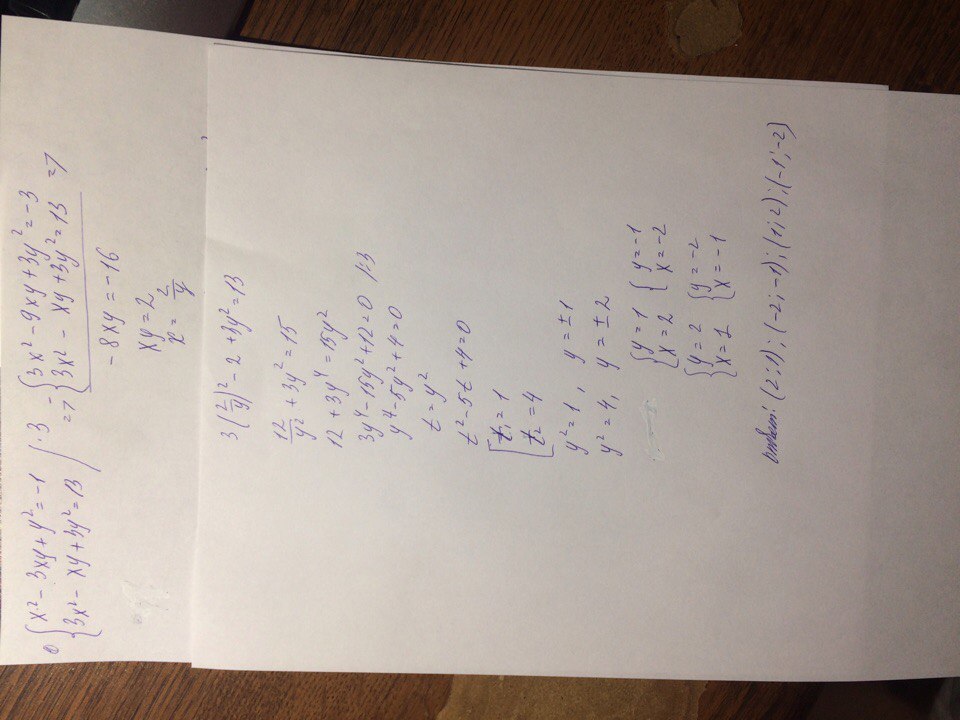 а) { x² - 3xy + y² = -1 | ·3 - { 3x² - 9xy + 3y² = -3
{ 3x² - xy + 3y² = 13 => { 3x² - xy + 3y² = 13 =>
-8xy = -16
xy = 2
x = 2/y
3(2/y)² - 2 + 3y² = 13
12/y² + 3y² = 15
12 + 3y⁴ = 15y²
3y⁴ - 15y² + 12 = 0 |:3
y⁴ - 5y² + 4 = 0
t = y²
t² - 5t + 4 = 0
[ t₁ = 1
[ t₂ = 4
y² = 1, y = ±1
y² = 4, y = ±2
{ y = 1 { y = -1
{ x = 2 { x = -2
{ y = 2 { y = -2
{ x = 1 { x = -1
ответ: (2;1); (-2;-1); (1;2); (-1;-2)